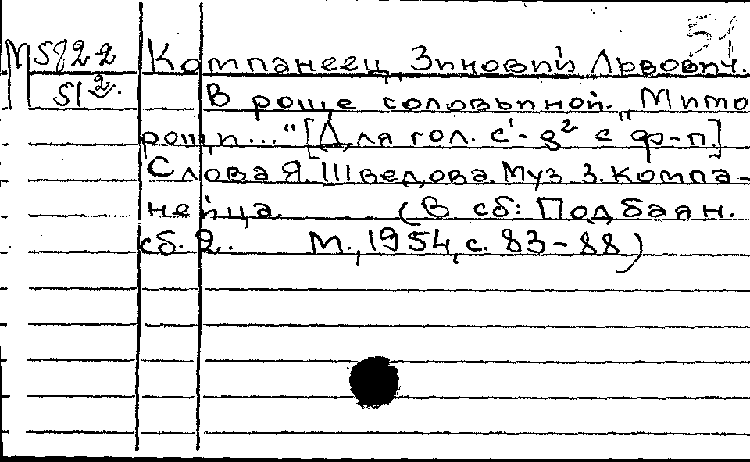 51
М 5822 Компанеец, Зиновий Львович.
51² В роще соловьиной. „Мимо
рощи..." [Для гол. c¹-g² с ф-п.]
Слова Я. Шведова. Муз. З. Компа-
нейца (В сб: Под баян.
сб. 2. М., 1954, с. 83-88)